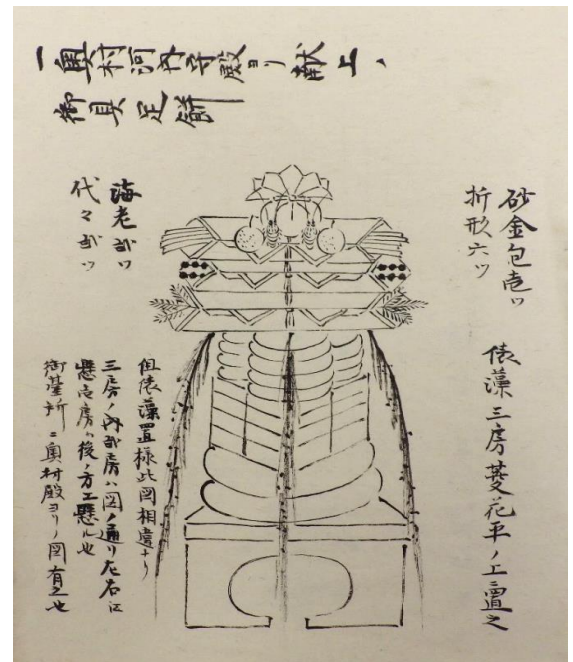 一奥村河内守殿ヨリ献上ノ
御具足餅
砂金包壱ツ
折形六ツ
俵藻三房菱花平ノ上ニ置之
海老弐ツ
代々弐ツ
但俵藻置様此図相違ナリ
三房ノ内弐房ハ図ノ通リ左右江
懸壱房ハ後ノ方エ懸ル也
御臺所ニ奥村殿ヨリノ図有之也